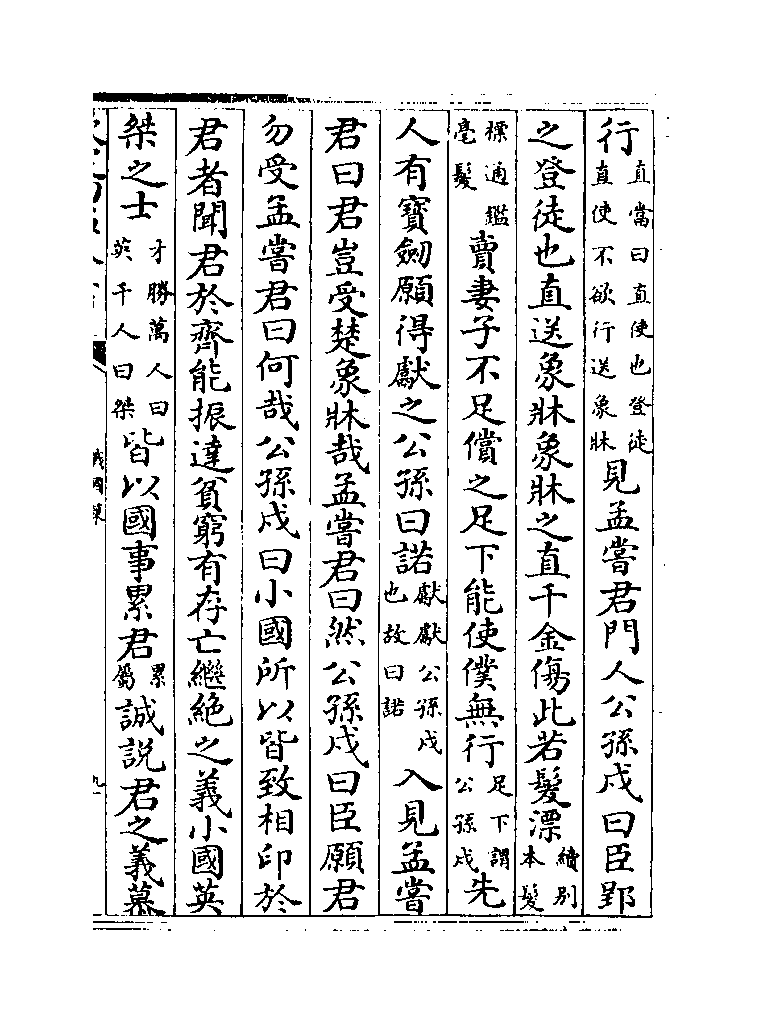 行直當曰直使也登徒直使不欲行送象牀見孟嘗君門人公孫戍曰臣郢
之登徒也直送象牀象牀之直千金傷此若髮漂續別本髮
標通鑑毫髮賣妻子不足償之足下能使僕無行足下謂公孫戍先
人有寳劒願得獻之公孫曰諾獻獻公孫戍也故曰諾入見孟嘗
君曰君豈受楚象牀哉孟嘗君曰然公孫戍曰臣願君
勿受孟嘗君曰何哉公孫戍曰小國所以皆致相印於
君者聞君於齊能振達貧窮有存亡繼絶之義小國英
桀之士才勝萬人曰英千人曰桀皆以國事累君累屬誠説君之義慕
戰國策